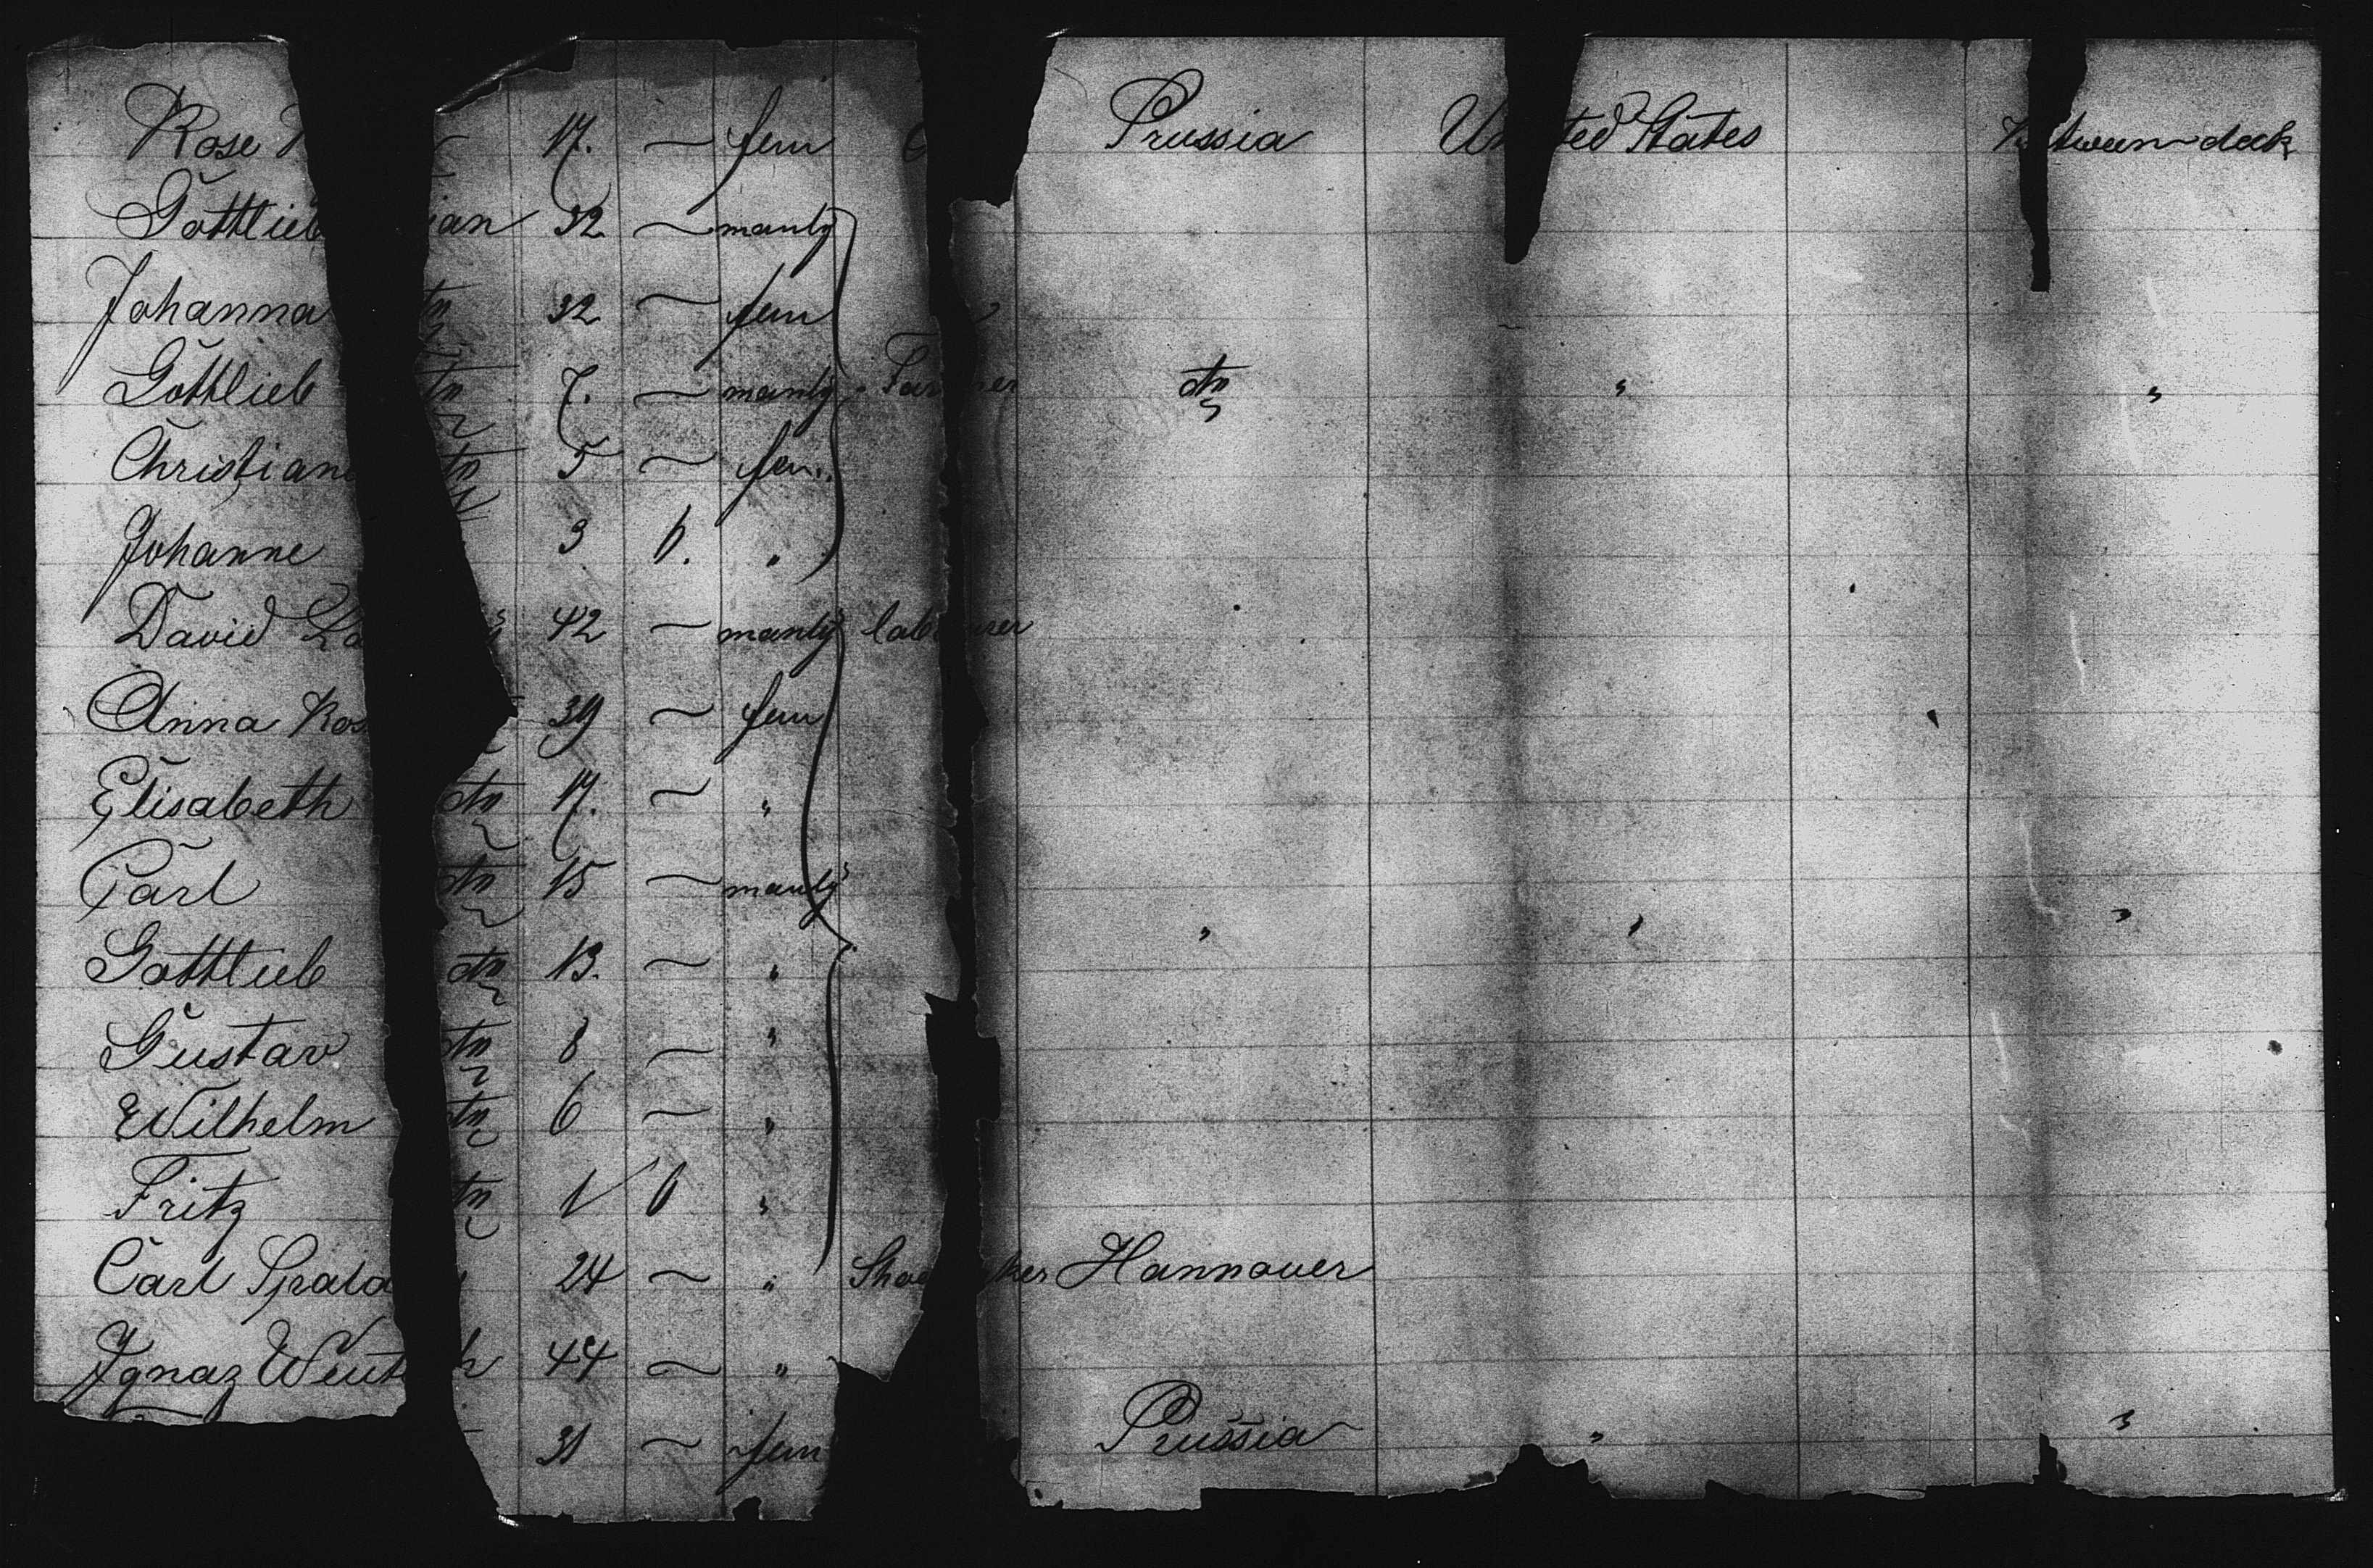 Rose 17. — fem Prussia United States Between deck
Gottlieb ian 32 — manly
Johanna dto 32 — fem
Gottlieb dto 7. — manly Farmer dto " "
Christiane dto 5 — fem.
Johanne 3 6. "
David La 42 — manly labourer
Anna Ros 39 — fem
Elisabeth dto 17. — "
Carl dto 15 — manly " " "
Gottlieb dto 13. — "
Gustav dto 8 — "
Wilhelm dto 6 — "
Fritz dto 1 6 "
Carl 24 — " Shoemaker Hannover
Ignaz 44 — "
31 — fem Prussia " "